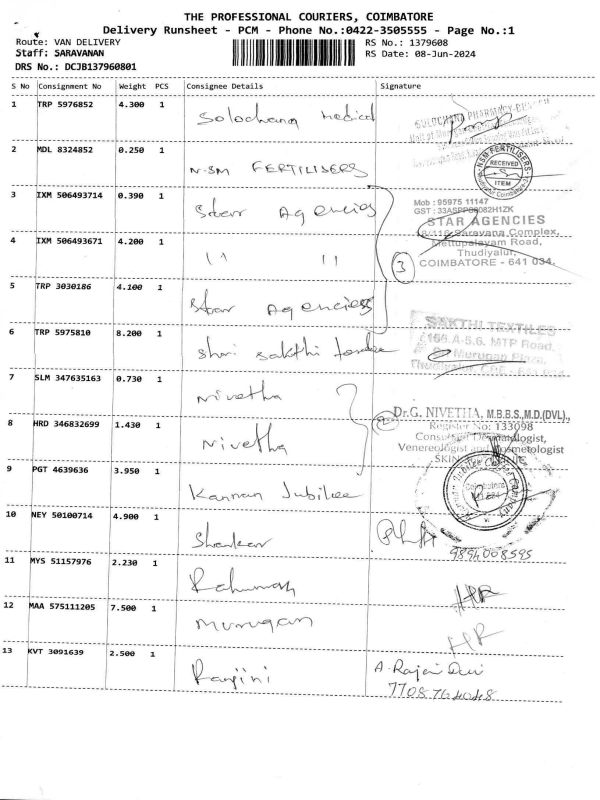 THE PROFESSIONAL COURIERS, COIMBATORE
Delivery Runsheet - PCM - Phone No.:0422-3505555 - Page No.:1
Route: VAN DELIVERY
RS No.: 1379608
Staff: SARAVANAN
RS Date: 08-Jun-2024
DRS No.: DCJB137960801
S No Consignment No Weight PCS Consignee Details Signature
1 TRP 5976852 4.300 1 Sulochana Medical
SULOCHANA PHARMACY
2 MDL 8324852 0.250 1 N-SM FERTILISERS
NSM FERTILISERS
RECEIVED
ITEM
3 IXM 506493714 0.390 1 Star Agencies
Mob : 95975 11147
STAR AGENCIES
Saravana Complex,
4 IXM 506493671 4.200 1 11 11
Mettupalayam Road,
Thudiyalur,
3 COIMBATORE - 641 034.
5 TRP 3030186 4.100 1 Star Agencies
6 TRP 5975810 8.200 1 Shri Sakthi
SAKTHI TEXTILES
MTP Road,
Murugan Plaza,
7 SLM 347635163 0.730 1 Nivetha
2 Dr.G. NIVETHA, M.B.B.S.,M.D.(DVL).,
8 HRD 346832699 1.430 1 Nivetha
Register No: 133098
Consultant Dermatologist,
Venereologist and Cosmetologist
SKIN
9 PGT 4639636 3.950 1 Kannan Jubilee
10 NEY 50100714 4.900 1 Shankar
9894008595
11 MYS 51157976 2.230 1
12 MAA 575111205 7.500 1 Murugan
13 KVT 3091639 2.500 1 Ranjini
A. Rajai Devi